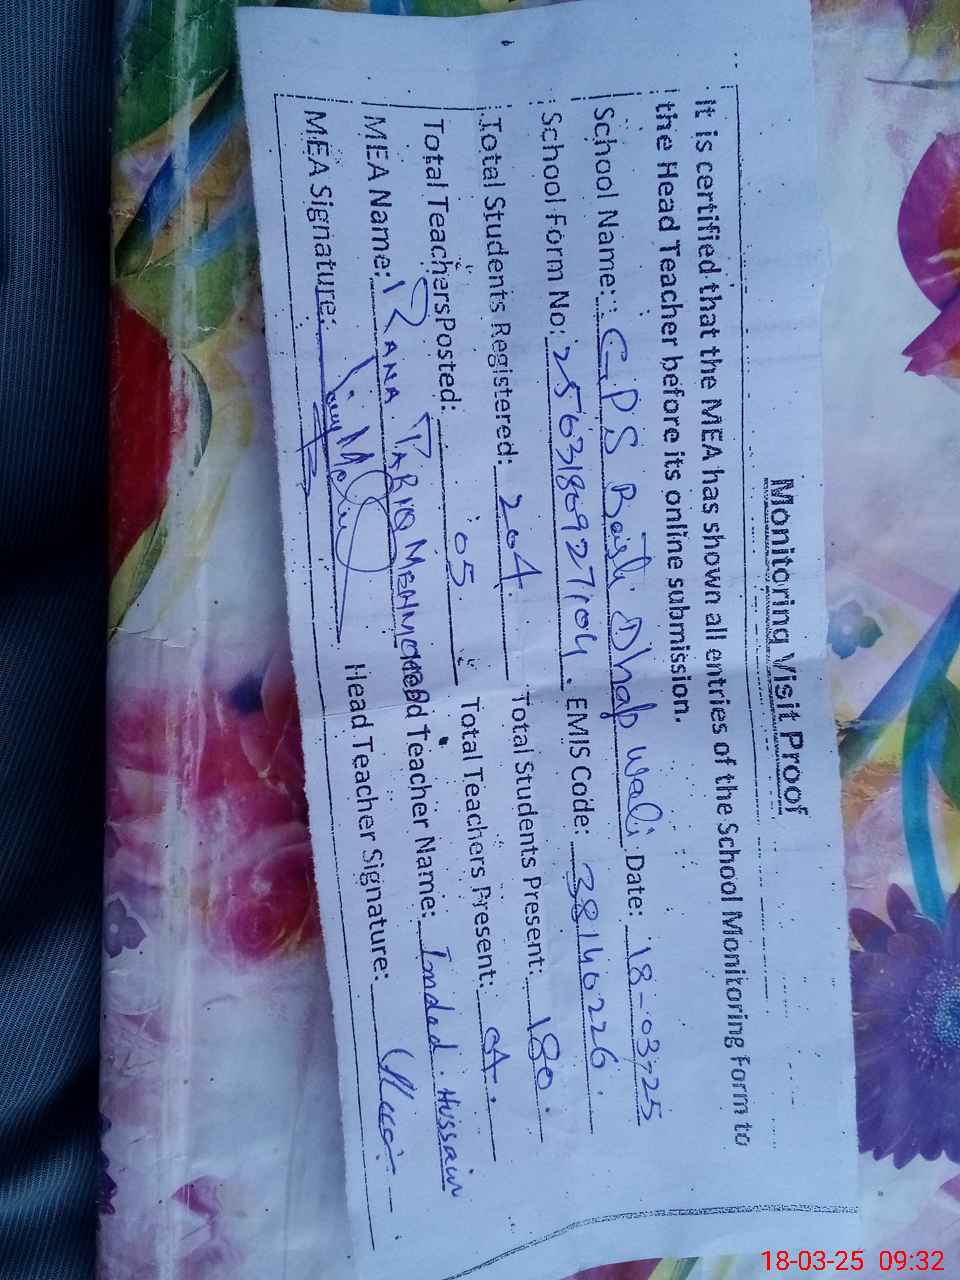 Monitoring Visit Proof
It is certified that the MEA has shown all entries of the School Monitoring Form to
the Head Teacher before its online submission.
School Name: GPS Dhap Wali Date: 18-03-25
School Form No: EMIS Code: 38140226
Total Students Registered: 204 Total Students Present: 180
Total Teachers Posted: 05 Total Teachers Present: 04
MEA Name: RANA TARIQ MEHMOOD Head Teacher Name: Imdad Hussain
MEA Signature: Head Teacher Signature:
18-03-25 09:32